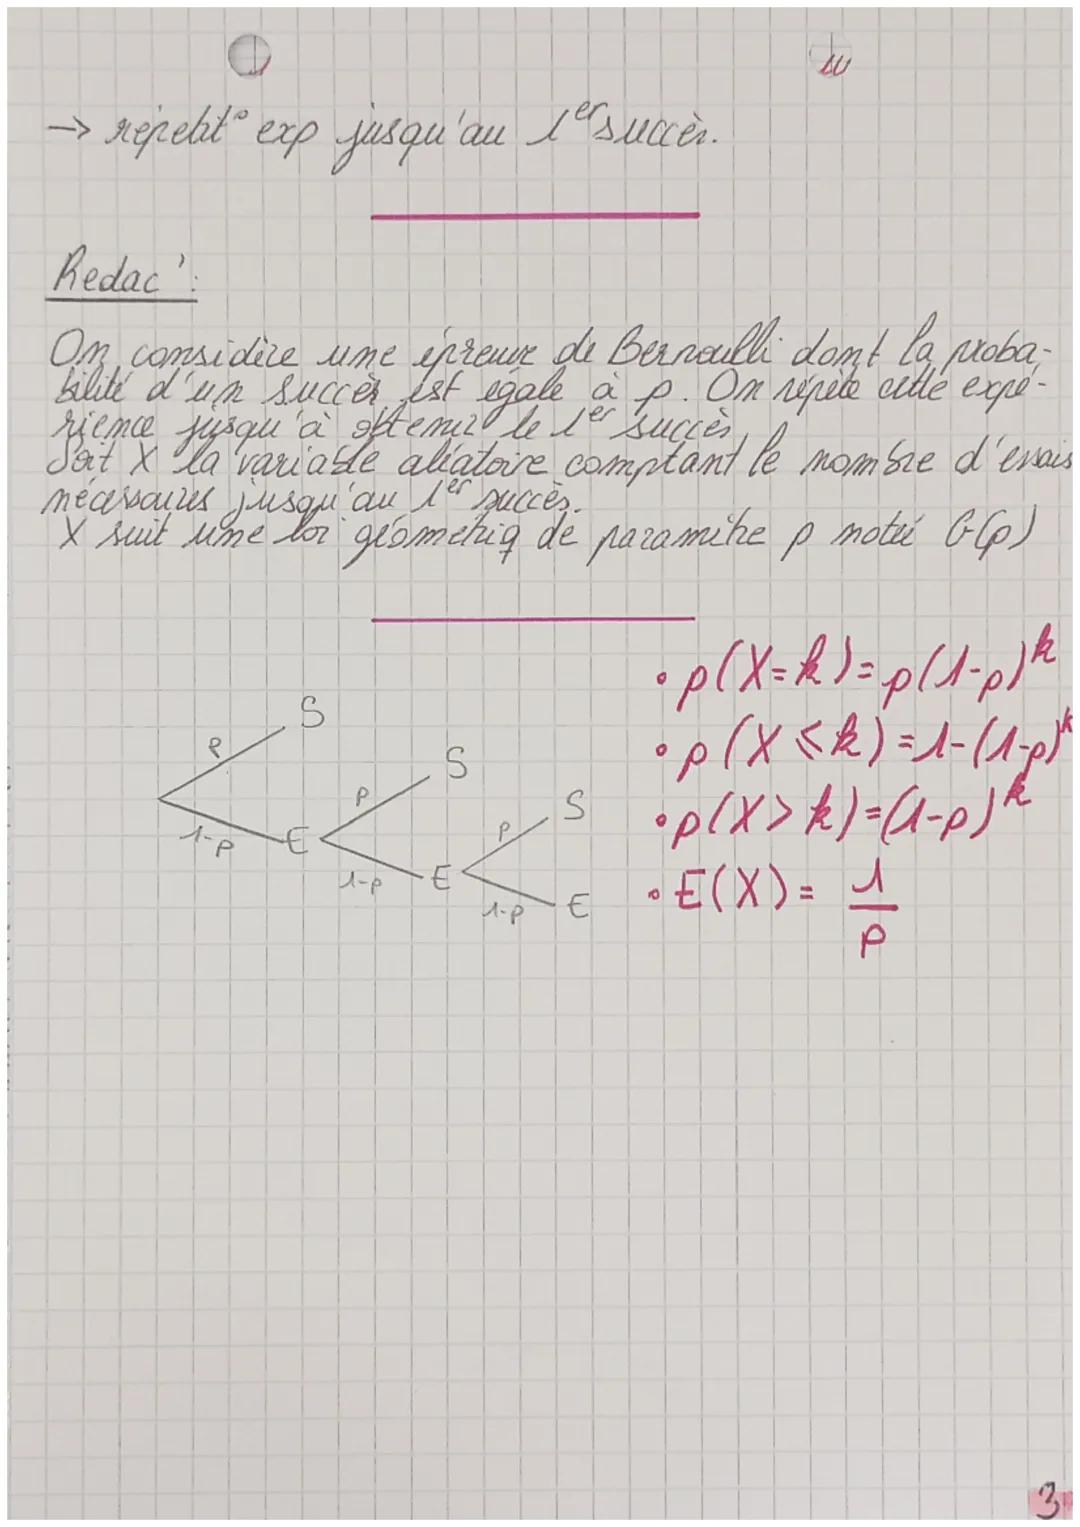 → répétit° exp jusqu'au 1er succès.
Redac':
On considère une épreuve de Bernoulli dont la proba-
bilité d'un succès est égale à p. On répète cette expé-
rience jusqu'à obtenir le 1er succès.
Soit X la variable aléatoire comptant le nombre d'essais
nécessaires jusqu'au 1er succès.
X suit une loi géométriq de paramètre p notée G(p)
• p(X=k)=p(1-p)^k
• p(X≤k)=1-(1-p)^k
• p(X>k)=(1-p)^k
• E(X)= 1/p
S
p
1-p
E
S
p
1-p
E
S
p
1-p
E
3